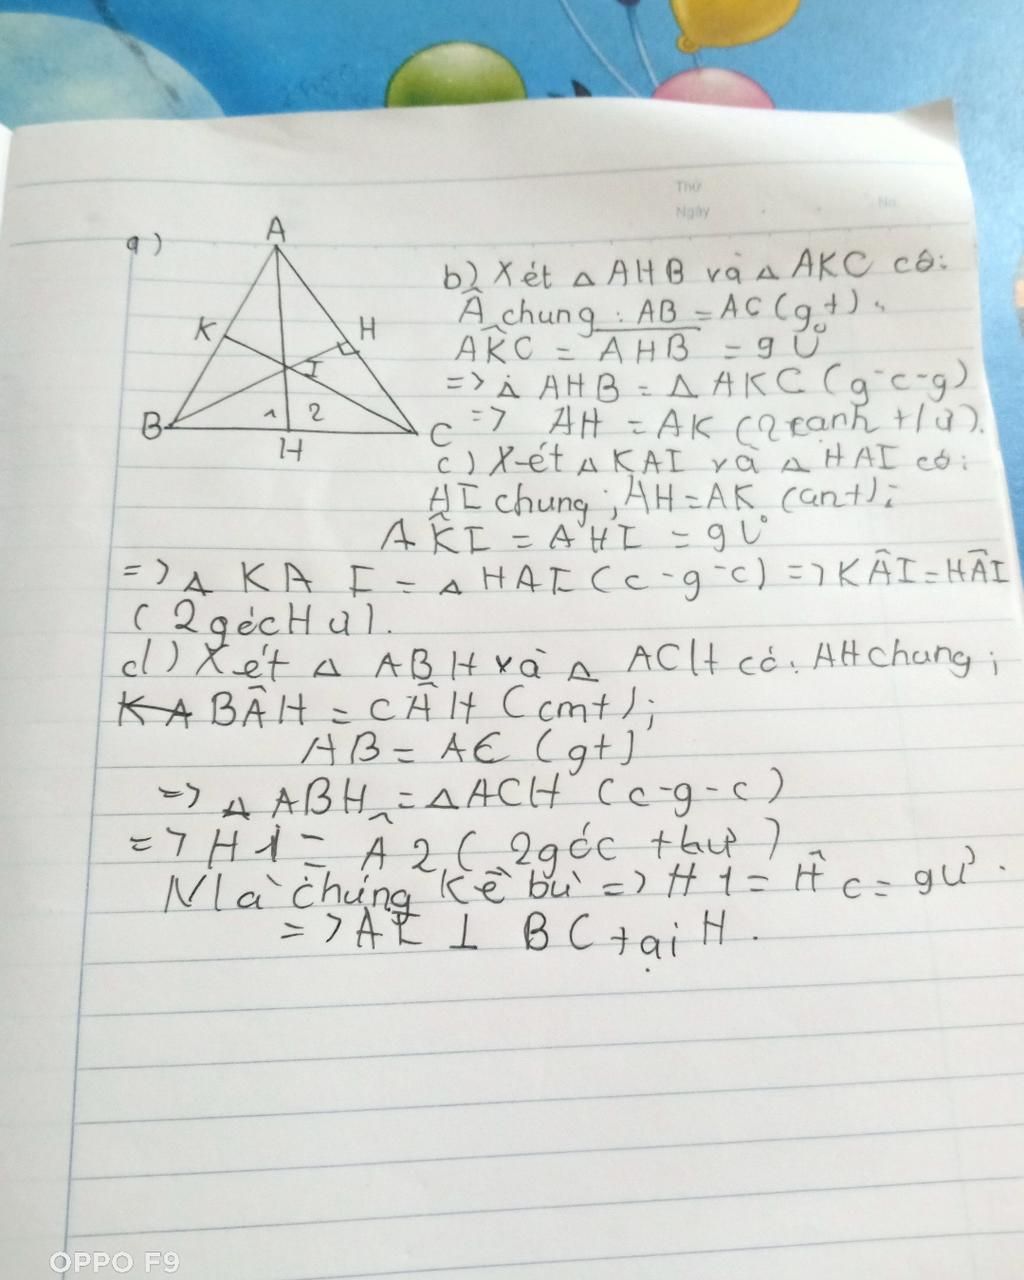 Thứ
Ngày No
a)
A
K H
I
B 1 2 C
H
b) Xét △ AHB và △ AKC có:
Â chung: AB = AC (gt).
AK̂C = AĤB = 90°
=> △ AHB = △ AKC (g-c-g)
=> AH = AK (2 cạnh t/ứ).
c) Xét △ KAI và △ HAI có:
HI chung; AH = AK (cmt);
AK̂I = AHI = 90°
=> △ KAI = △ HAI (c-g-c) => KÂI = HÂI
(2 góc t/ứ).
d) Xét △ ABH và △ ACH có: AH chung;
BÂH = CÂH (cmt);
AB = AC (gt)
=> △ ABH = △ ACH (c-g-c)
=> H1 = Ĥ2 (2 góc t/ư)
Mà chúng kề bù => H1 = Ĥ c = 90°.
=> AI ⊥ BC tại H.
OPPO F9